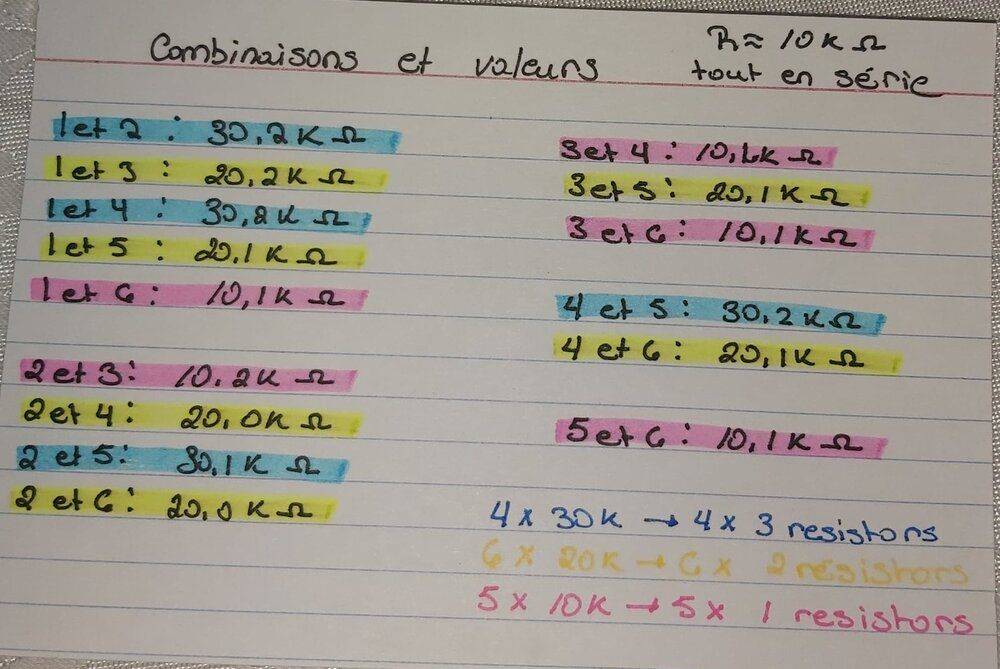 Combinaisons et valeurs
R ≈ 10K Ω
tout en série
1 et 2 : 30,2K Ω
1 et 3 : 20,2K Ω
1 et 4 : 30,2K Ω
1 et 5 : 20,1K Ω
1 et 6 : 10,1K Ω
2 et 3 : 10,2K Ω
2 et 4 : 20,0K Ω
2 et 5 : 30,1K Ω
2 et 6 : 20,0K Ω
3 et 4 : 10,1K Ω
3 et 5 : 20,1K Ω
3 et 6 : 10,1K Ω
4 et 5 : 30,2K Ω
4 et 6 : 20,1K Ω
5 et 6 : 10,1K Ω
4 x 30K → 4 x 3 resistors
6 x 20K → 6 x 2 résistors
5 x 10K → 5 x 1 resistors